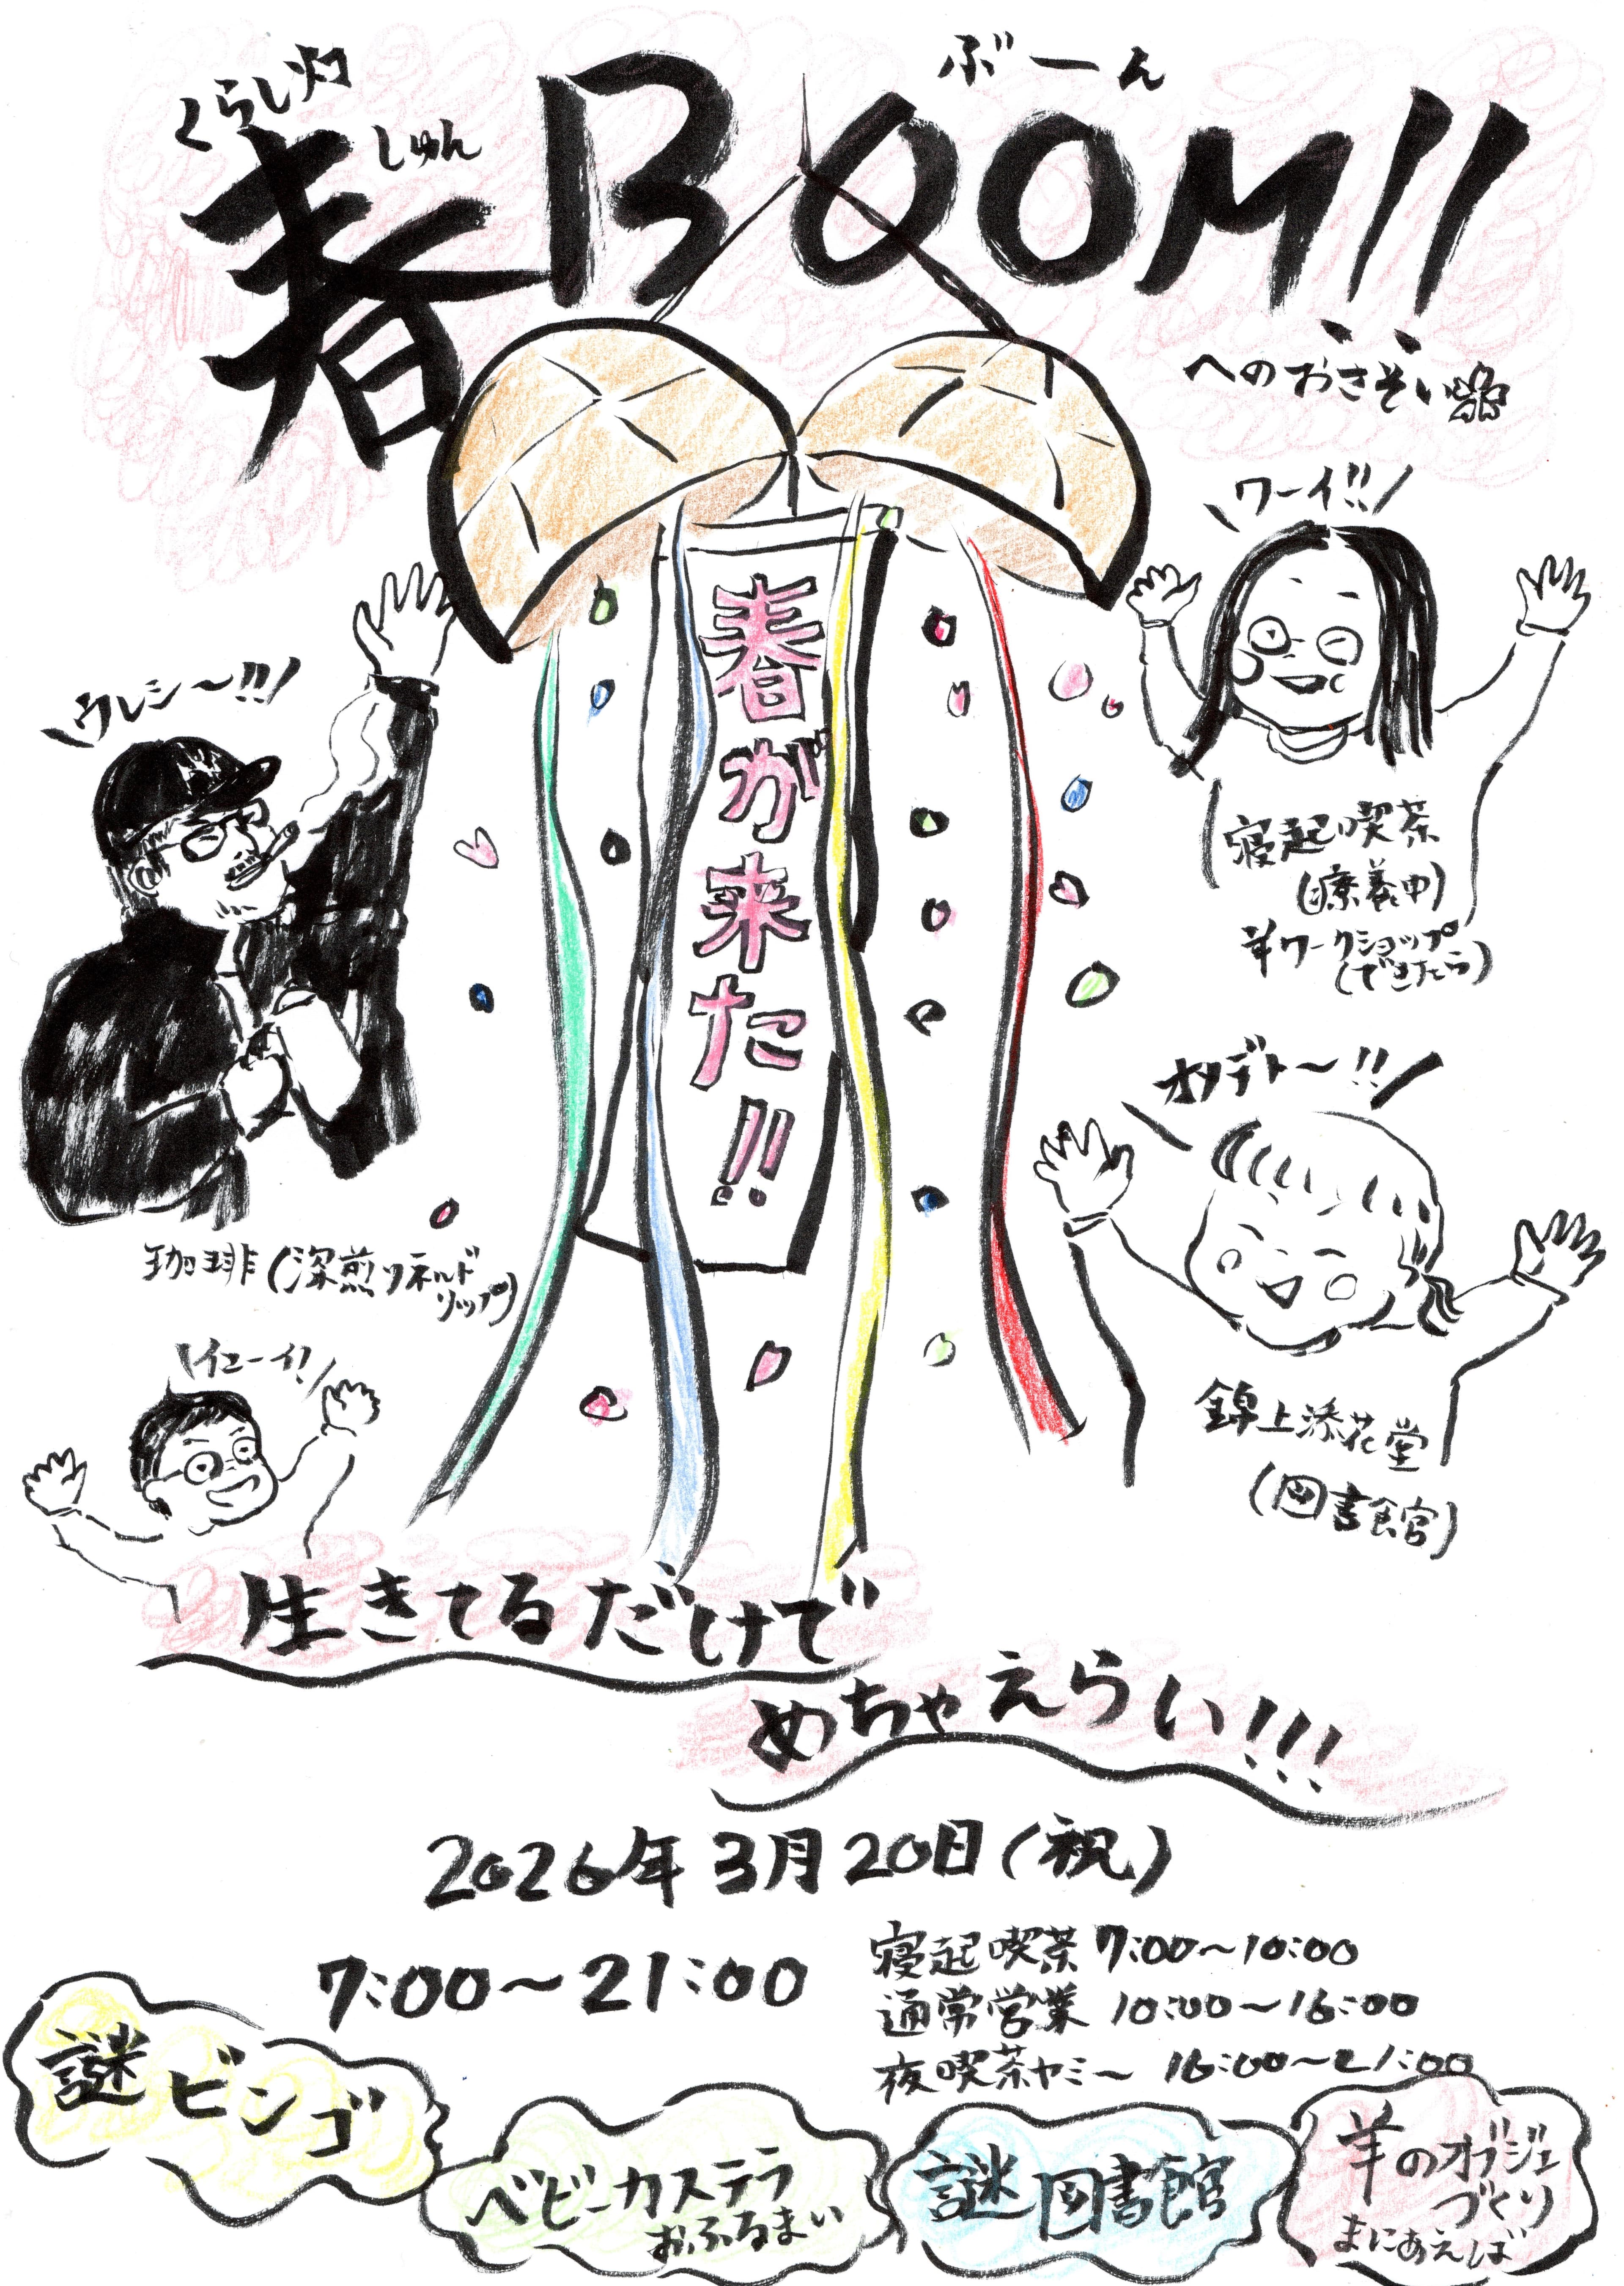 くらし畑
しゅん
ぶーん
春BOOM!!
へのおさそい
ワーイ!!
ウレシ〜!!
春が来た!!
寝起喫茶
(療養中)
羊ワークショップ
(できたら)
オメデト〜!!
珈琲(深煎りネルド
リップ)
イエーイ!
錦上添花堂
(図書館)
生きてるだけで
めちゃえらい!!!
2026年3月20日(祝)
7:00〜21:00
寝起喫茶 7:00〜10:00
通常営業 10:00〜16:00
夜喫茶ヤミー 16:00〜21:00
謎ビンゴ
ベビーカステラ
おふるまい
謎図書館
羊のオブジェ
づくり
まにあえば